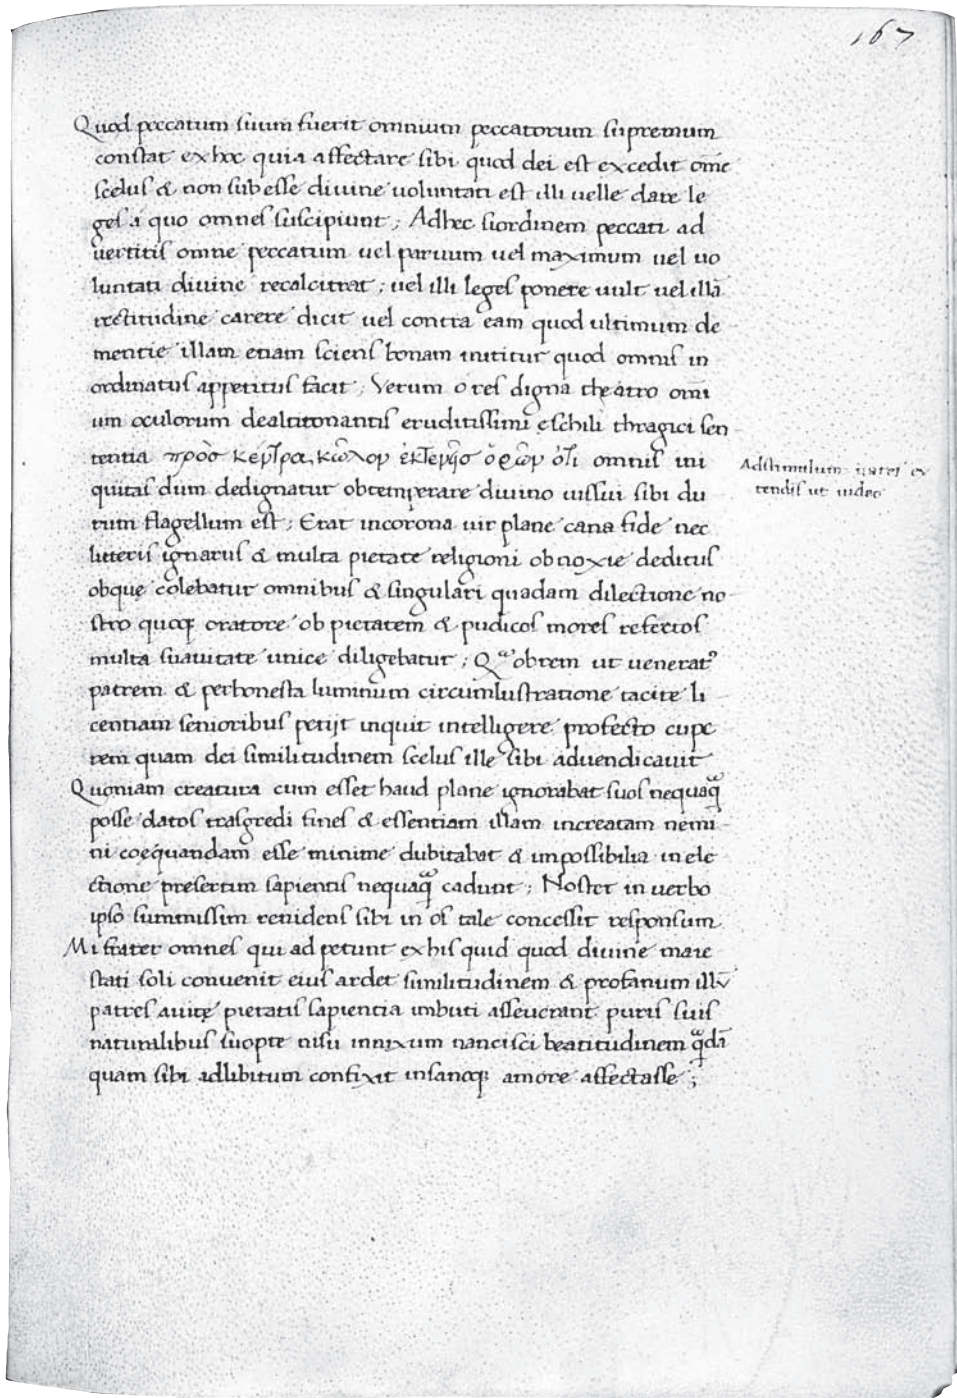 167
Quod peccatum suum fuerit omnium peccatorum supremum
constat ex hoc quia affectare sibi quod dei est excedit om̄e
scelus & non subesse divine voluntati est illi velle dare le
ges a quo omnes suscipiunt ; Adhec si ordinem peccati ad
vertitis omne peccatum vel parvum vel maximum vel vo
luntati divine recalcitrat ; vel illi leges ponere vult vel illā
rectitudine carere dicit vel contra eam quod ultimum de
mentie illam etiam sciens bonam nititur quod omnis in
ordinatus appetitus facit ; Verum o res digna theatro omni
um oculorum dealtitonantis eruditissimi eschili thragici sen
tentia πρὸσ κέντρα κῶλον ἐκτενῆισ ὁρῶν ὅτι omnis ini
quitas dum dedignatur obtemperare divino iussui sibi du
rum flagellum est ; Erat incorona vir plane cana fide nec
litteris ignarus & multa pietate religioni obnoxie deditus
obque colebatur omnibus & singulari quadam dilectione no
stro quoqꝫ oratore ob pietatem & pudicos mores refertos
multa suavitate unice diligebatur ; Qᵃobrem ut venerat᷒
patrem & perhonesta luminum circumlustratione tacite li
centiam senioribus petijt inquit intelligere profecto cupe
rem quam dei similitudinem scelus ille sibi advendicavit
Quoniam creatura cum esset haud plane ignorabat suos nequaq̄
posse datos trasgredi fines & essentiam illam increatam nemi
ni coęquandam esse minime dubitabat & impossibilia in ele
ctione presertim sapientis nequaq̄ cadunt ; Noster in verbo
ipso summissim renidens sibi in os tale concessit responsum
Mi frater omnes qui adpetunt ex his quid quod divine maie
stati soli convenit eius ardet similitudinem & profanum illū
patres avitę pietatis sapientia imbuti asseverant puris suis
naturalibus suopte nisu innixum nancisci beatitudinem q̄dā
quam sibi adlibitum confixit insanoqꝫ amore affectasse ;
Adstimulum
tendis ut video